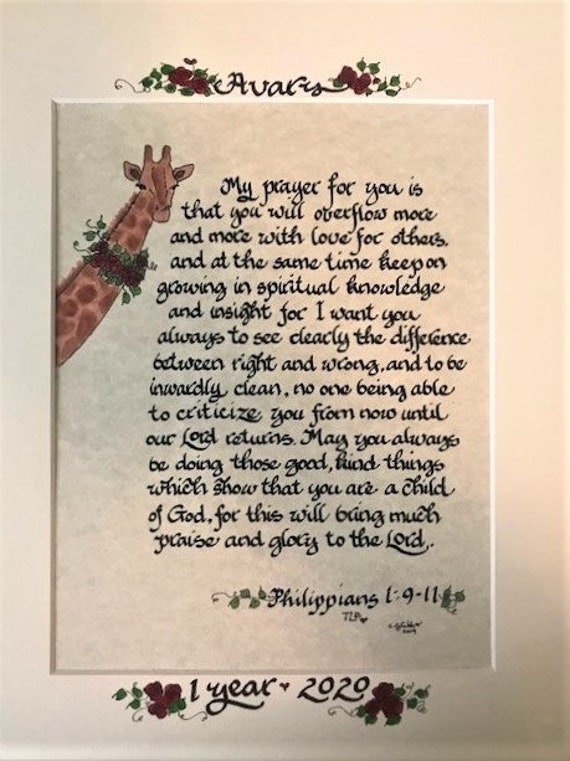 Avary
My prayer for you is
that you will overflow more
and more with love for others,
and at the same time keep on
growing in spiritual knowledge
and insight for I want you
always to see clearly the difference
between right and wrong, and to be
inwardly clean, no one being able
to criticize you from now until
our Lord returns. May you always
be doing those good, kind things
which show that you are a child
of God, for this will bring much
praise and glory to the Lord.
Philippians 1:9-11
TLB
2019
1 year 2020